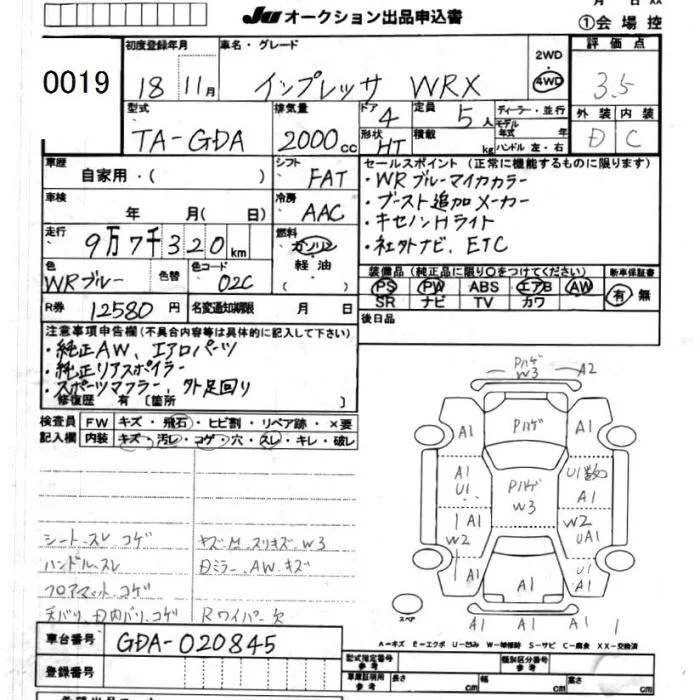 JU オークション出品申込書
月 日 XX
①会場控
0019
初度登録年月
18 11月
車名・グレード
インプレッサ WRX
2WD
4WD
評価点
3.5
外装 内装
D C
型式
TA-GDA
排気量
2000cc
ドア 4
形状 HT
定員 5人
積載 kg
ディーラー・並行
モデル年式 年
ハンドル 左・右
車歴
自家用・( )
シフト
FAT
車検
年 月(日 )
冷房
AAC
走行
9万7千320km
燃料
ガソリン
軽油・
色
WRブルー
色替
色コード
02C
R券 12580円
名変通知期限 月 日
セールスポイント(正常に機能するものに限ります)
・WRブルーマイカカラー
・ブースト追加メーカー
・キセノンHライト
・社外ナビ、ETC
装備品(純正品に限り○をつけてください)
PS PW ABS エアB AW
SR ナビ TV カワ
新車保証書
有 無
後日品
注意事項申告欄(不具合内容等は具体的に記入して下さい)
・純正AW、エアロパーツ
・純正リアスポイラー
・スポーツマフラー、外足回り
修復歴 有〔箇所 〕
検査員記入欄
FW キズ・飛石・ヒビ割・リペア跡・×要
内装 キズ・汚レ・コゲ・穴・スレ・キレ・破レ
シート、スレ コゲ
ハンドル、スレ
フロアマット、コゲ
天バリ、内バリ、コゲ
スリキズ、W3
ミラー、AW、キズ
Rワイパー欠
Pハゲ
W3
A2
A1
Pハゲ
A1
A1
U1
Pハゲ
W3
U1数
A1
A1
W2
W2
UA1
A1
A1
A1
A1
スペア
A-キズ E-エクボ U-凹み W-補修跡 S-サビ C-腐食 XX-交換済
車台番号 GDA-020845
登録番号
型式指定番号 参考
類別区分番号 参考
車庫証明用 参考 長さ 幅 高さ